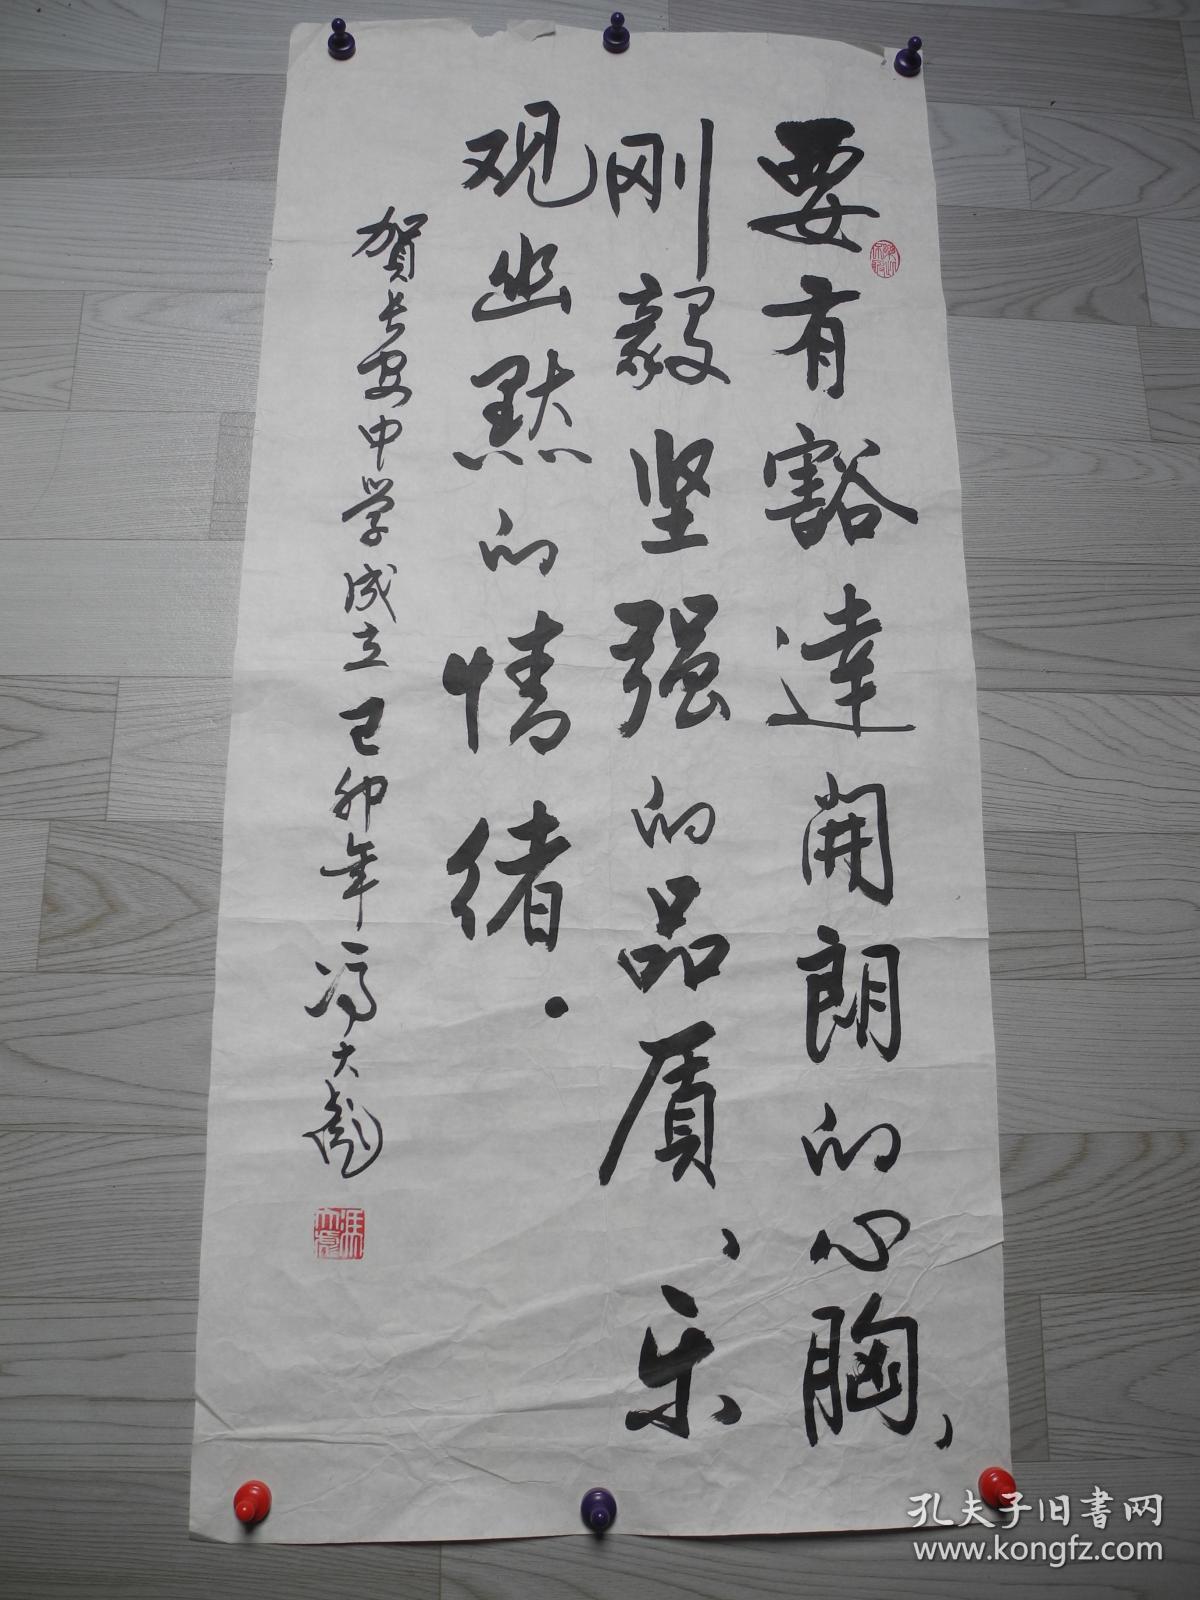 要有豁達開朗的心胸，
刚毅坚强的品质、乐
观幽默的情绪．
賀长安中学成立己卯年冯大彪
孔夫子旧書网
www.kongfz.com